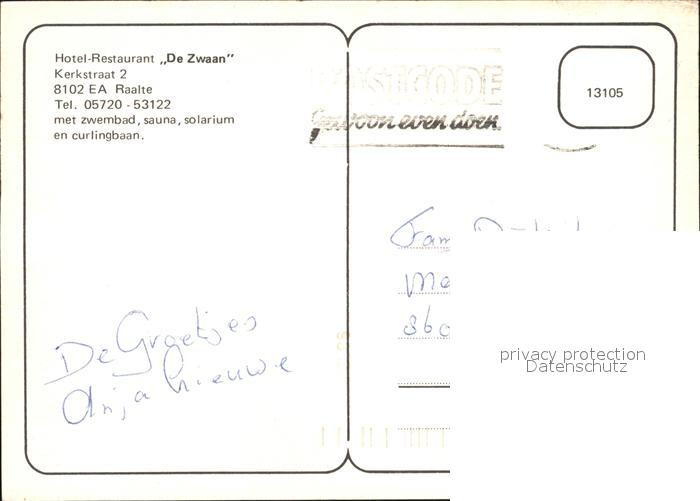 Hotel-Restaurant „De Zwaan”
Kerkstraat 2
8102 EA Raalte
Tel. 05720 - 53122
met zwembad, sauna, solarium
en curlingbaan.
POSTCODE
gewoon even doen.
13105
Fam
De Groetjes
Anja Nieuwe
privacy protection
Datenschutz